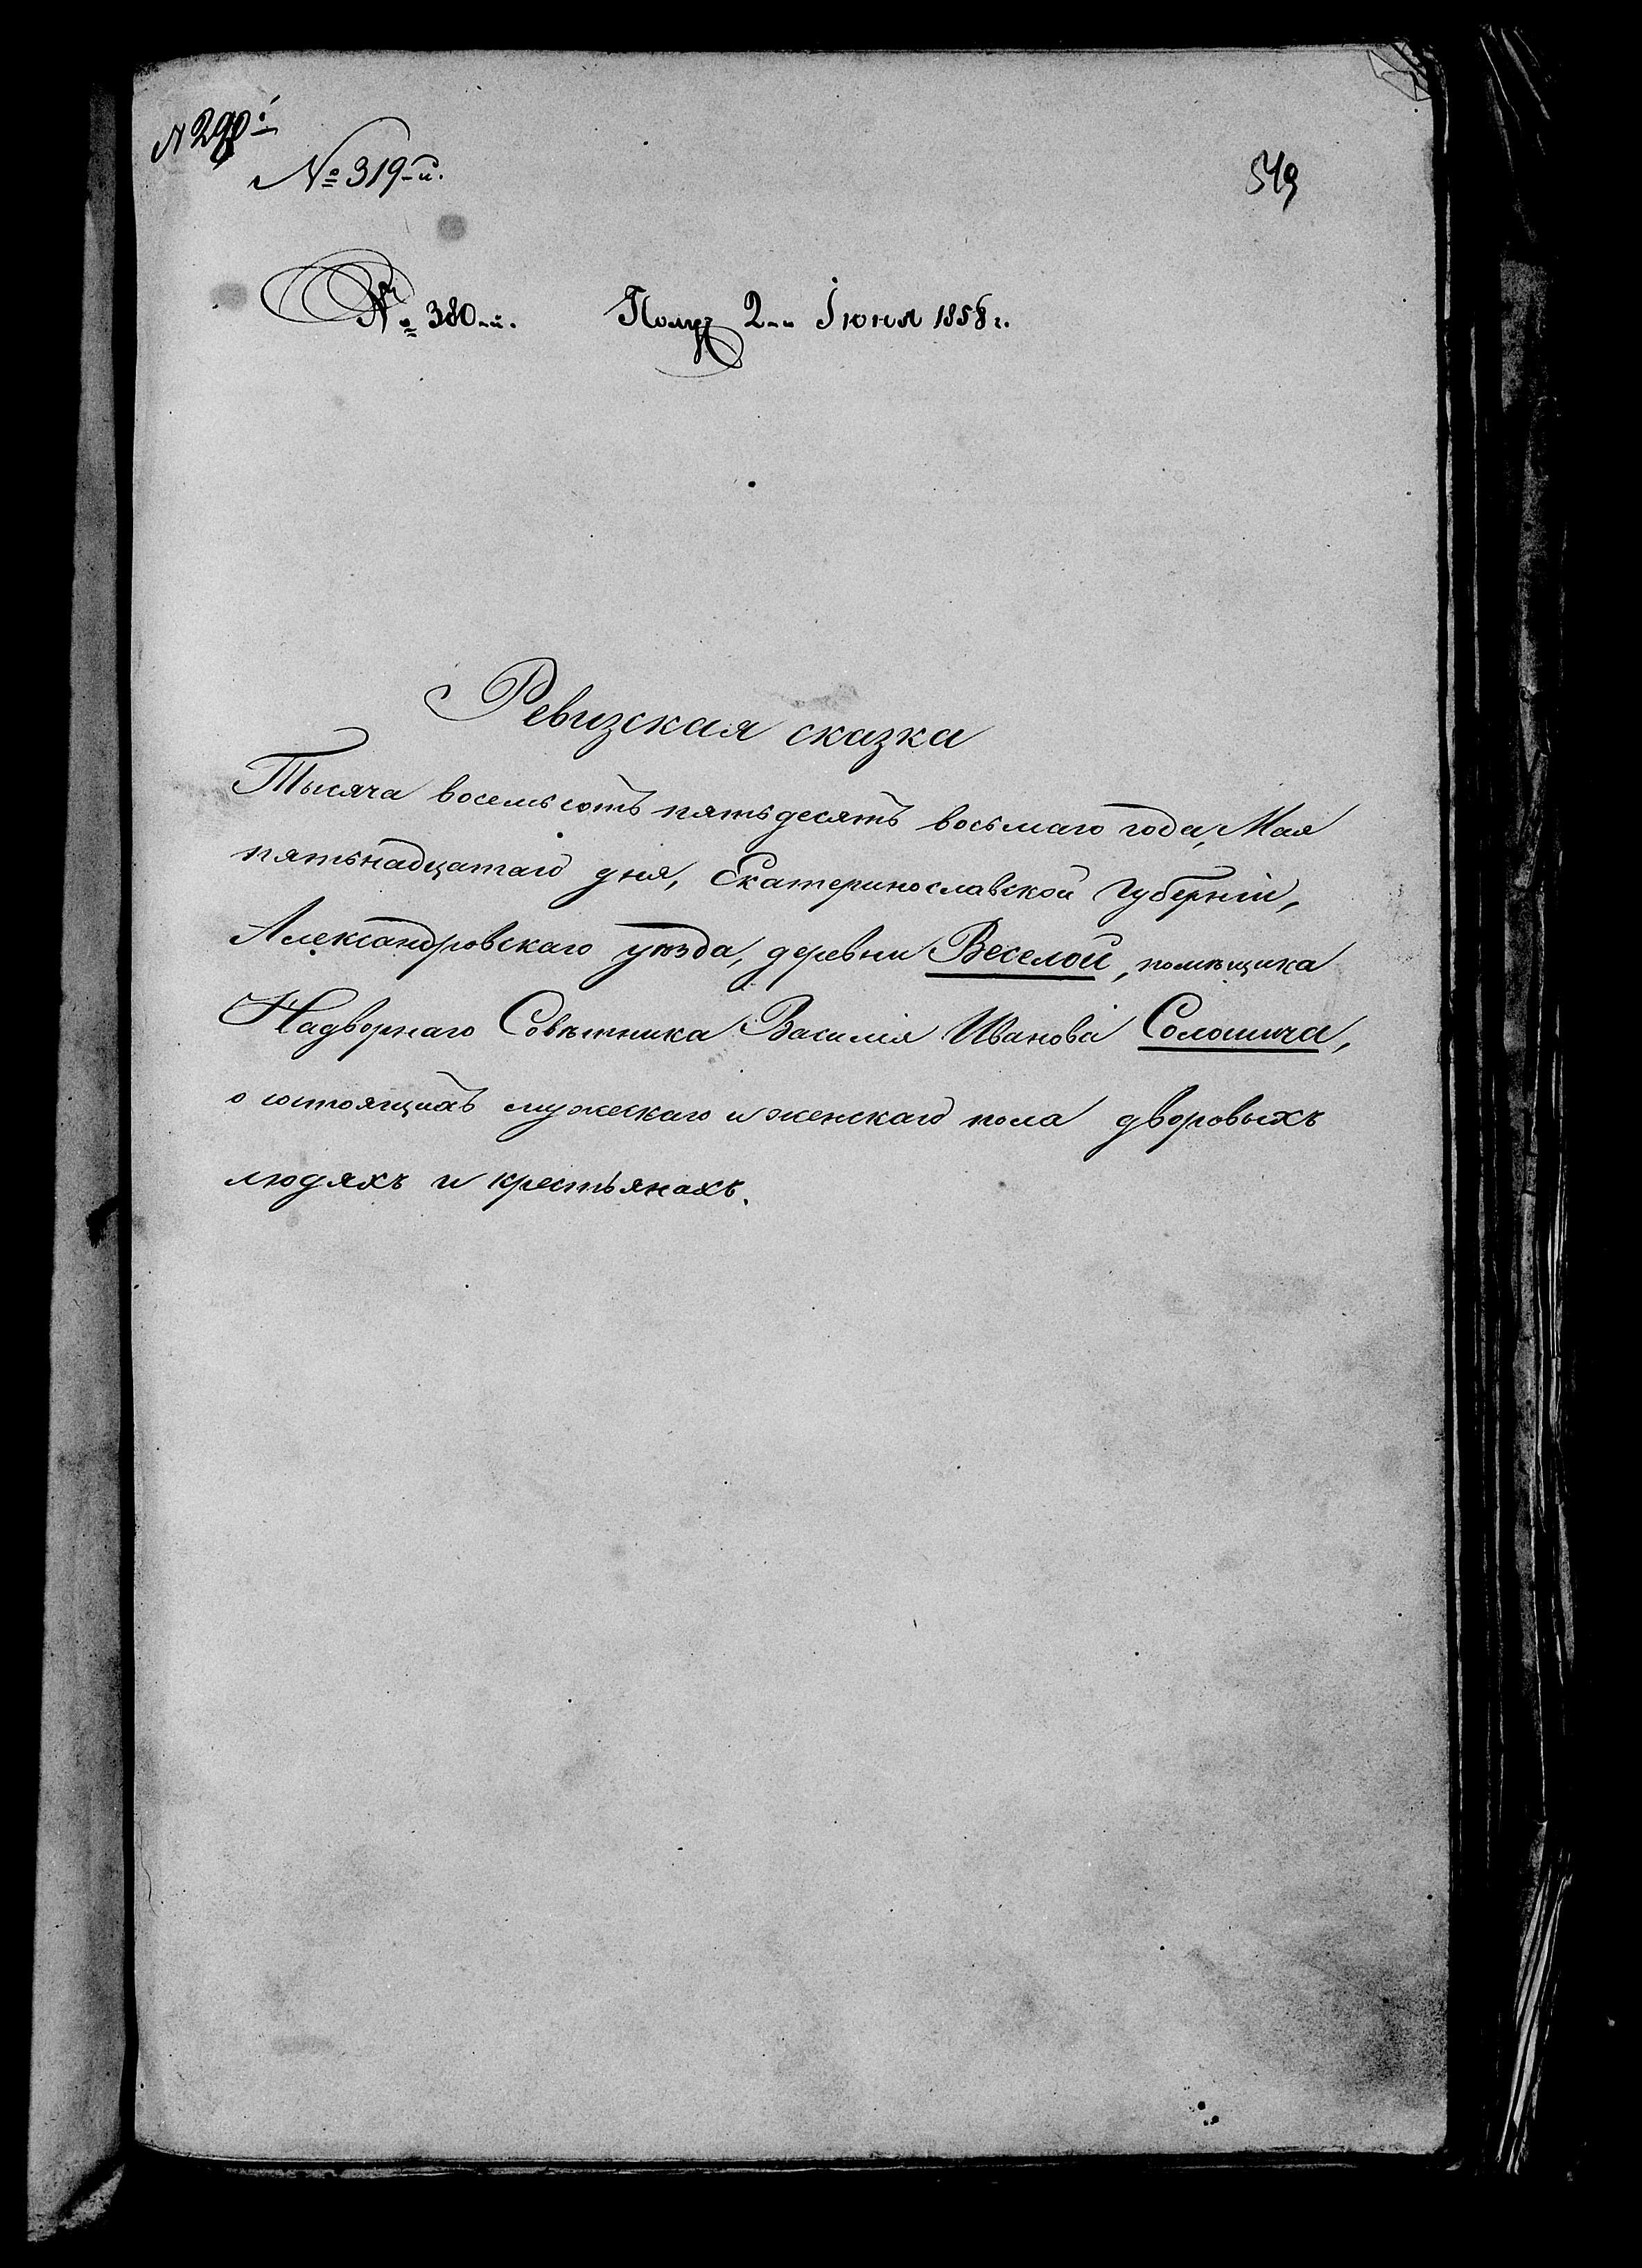 № 319-й.
549
№ 380-й. Получ 2-го Іюня 1858 г.
Ревизская сказка
Тысяча восемьсотъ пятьдесятъ восьмаго года, Мая
пятьнадцатаго дня, Екатеринославской Губерніи,
Александровскаго уѣзда, деревни Веселой, помѣщика
Надворнаго Совѣтника Василія Иванова Солошича,
о состоящихъ мужескаго и женскаго пола дворовыхъ
людяхъ и крестьянахъ.